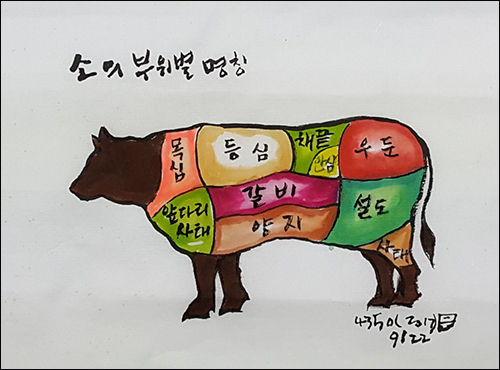 소의 부위별 명칭
목심
등심
채끝
안심
우둔
갈비
앞다리
사태
양지
설도
사태
9122